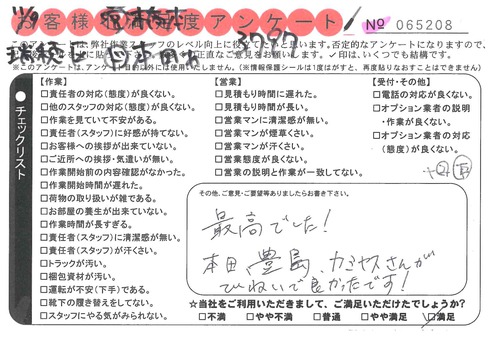 11/9
お客様満足度アンケート
No 065208
このアンケートは、弊社作業スタッフのレベル向上に役立てたいと思います。否定的なアンケートになりますので、
正直なご意見をお願いします。✓印は、いくつでも結構です。
※このアンケートは、アンケート目的以外には使用いたしません。(※情報保護シールは1度はがすと、再度貼りなおすことはできません)
チェックリスト
【作業】
□責任者の対応(態度)が良くない。
□他のスタッフの対応(態度)が良くない。
□作業を見ていて不安がある。
□責任者(スタッフ)に好感が持てない。
□お客様への挨拶が出来ていない。
□ご近所への挨拶・気遣いが無い。
□作業開始前の内容確認がなかった。
□作業開始時間が遅れた。
□荷物の取り扱いが雑である。
□お部屋の養生が出来ていない。
□作業時間が長すぎる。
□責任者(スタッフ)に清潔感が無い。
□責任者(スタッフ)が汗くさい。
□トラックが汚い。
□梱包資材が汚い。
□運転が不安(下手)である。
□靴下の履き替えをしてない。
□スタッフにやる気がみられない。
【営業】
□見積もり時間に遅れた。
□見積もり時間が長い。
□営業マンに清潔感が無い。
□営業マンが煙草くさい。
□営業マンが汗くさい。
□営業態度が良くない。
□営業の説明と作業が一致してない。
【受付・その他】
□電話の対応が良くない。
□オプション業者の説明
・作業が良くない。
□オプション業者の対応
(態度)が良くない。
その他、ご意見・ご要望等ありましたらお書き下さい。
最高でした!
本田 豊島、カミヤスさんが
ていねいで良かったです!
☆当社をご利用いただきまして、ご満足いただけたでしょうか?
□不満 □やや不満 □普通 □やや満足 ☑満足